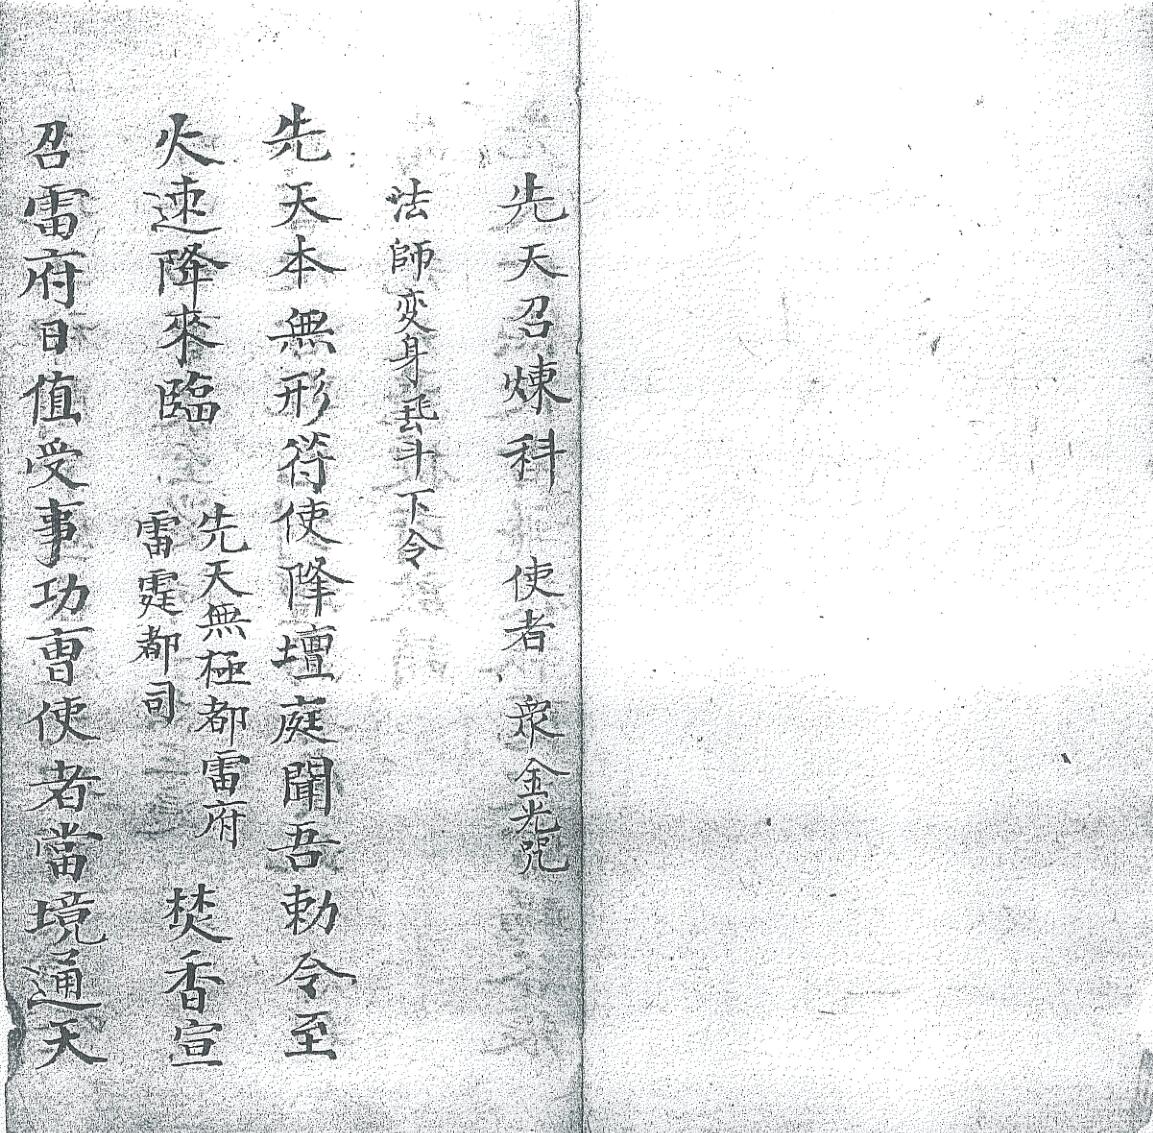 先天召煉科　使者　衆金光咒
法師変身　斗下令
先天本無形符使降壇庭聞吾勅令至
火速降來臨
先天無極都雷府
雷霆都司
焚香宣
召雷府日值受事功曹使者當境通天